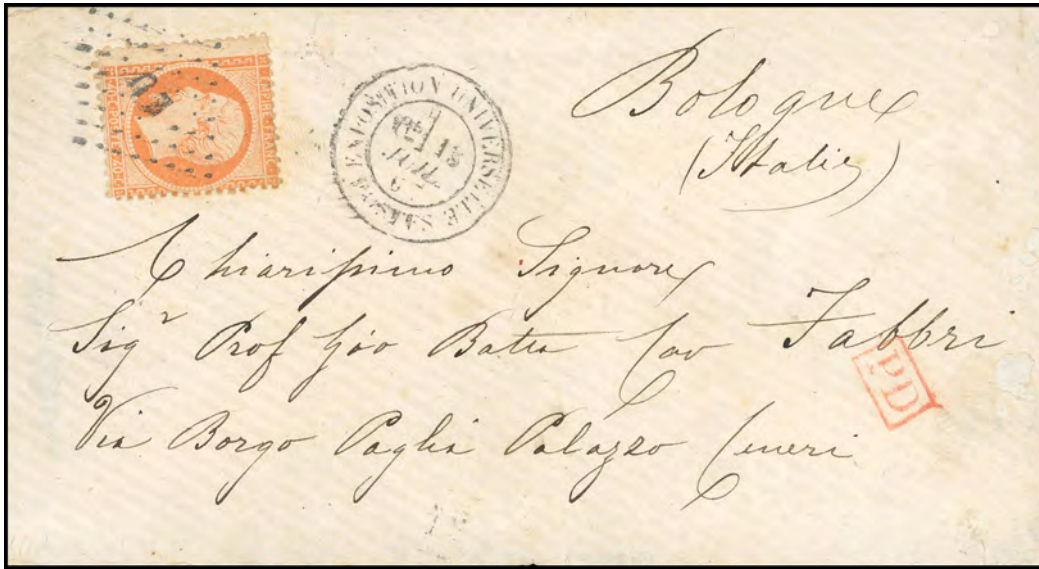 EU
EXPOSITION UNIVERSELLE
15
JUIL
Bologne
(Italie)
Chiarissimo Signore
Sigr Prof Gio Batta Cav Fabbri
PD
Via Borgo Paglia Palazzo Ceneri